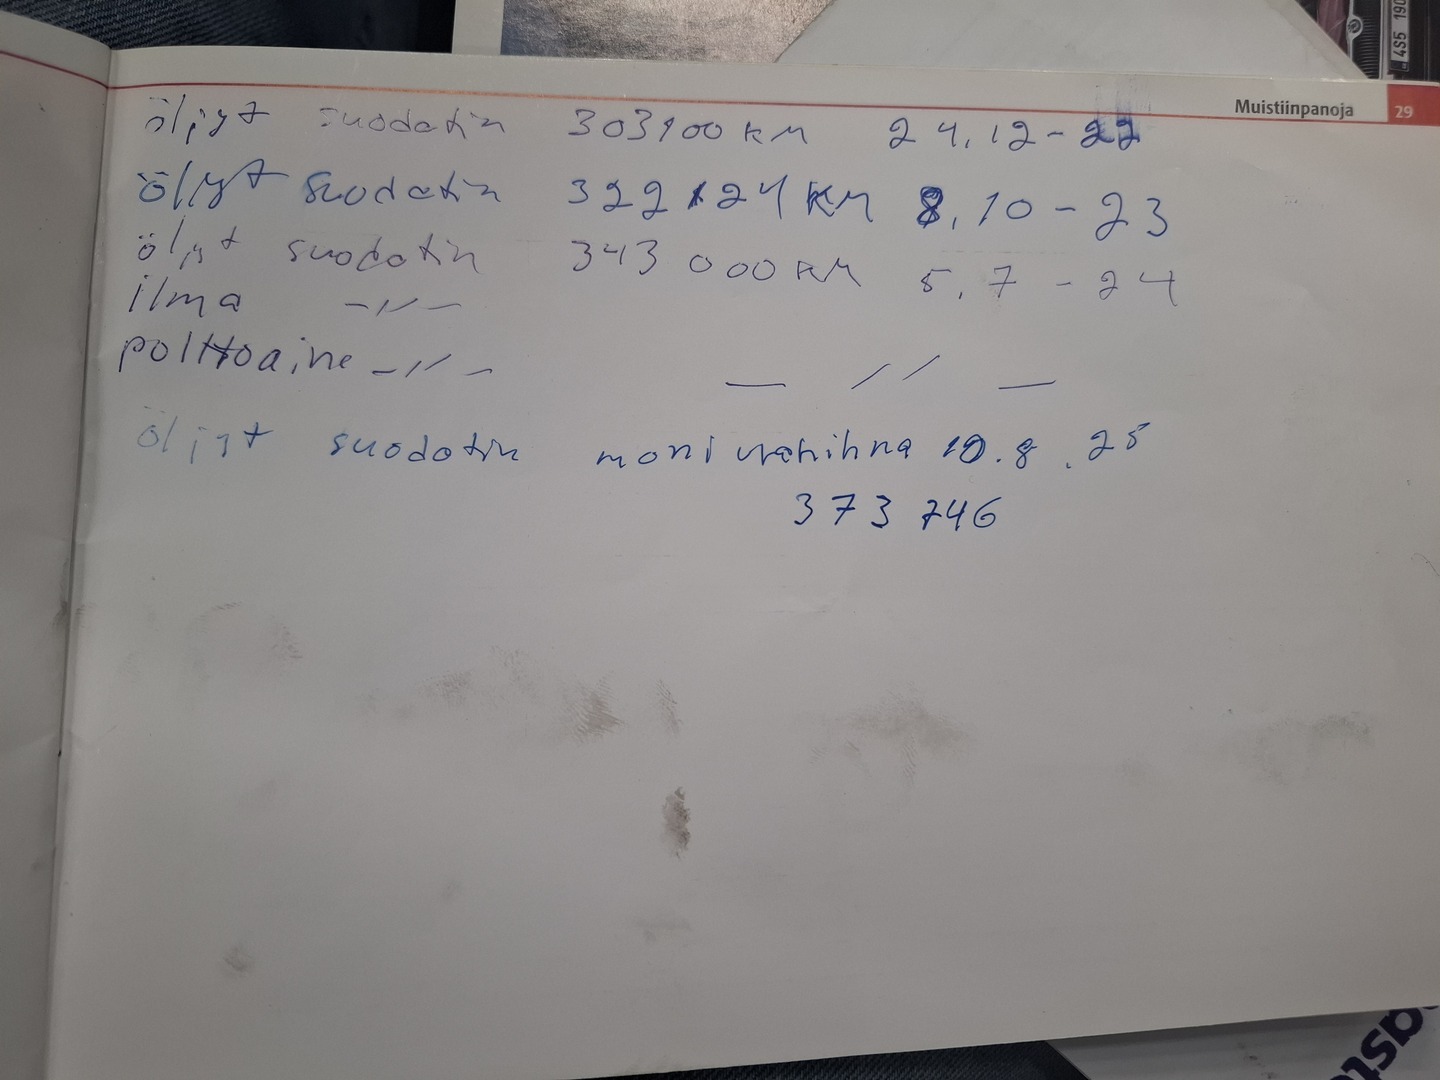 Muistiinpanoja 29
öljyt suodatin 303100 km 24.12-22
öljyt suodatin 322124 km 8.10-23
öljyt suodatin 343 000 km 5.7-24
ilma -//-
polttoaine -//- - // -
öljyt suodatin moniurahihna 10.8.25
373 746
4S5 190